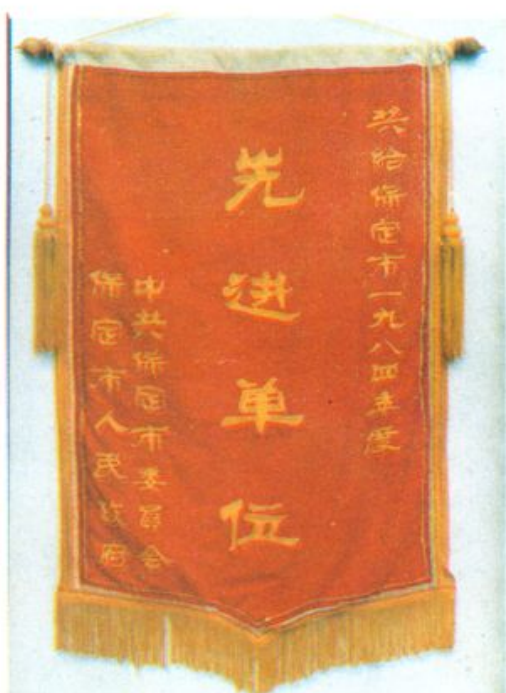 奖给保定市一九八四年度
先进单位
中共保定市委员会
保定市人民政府